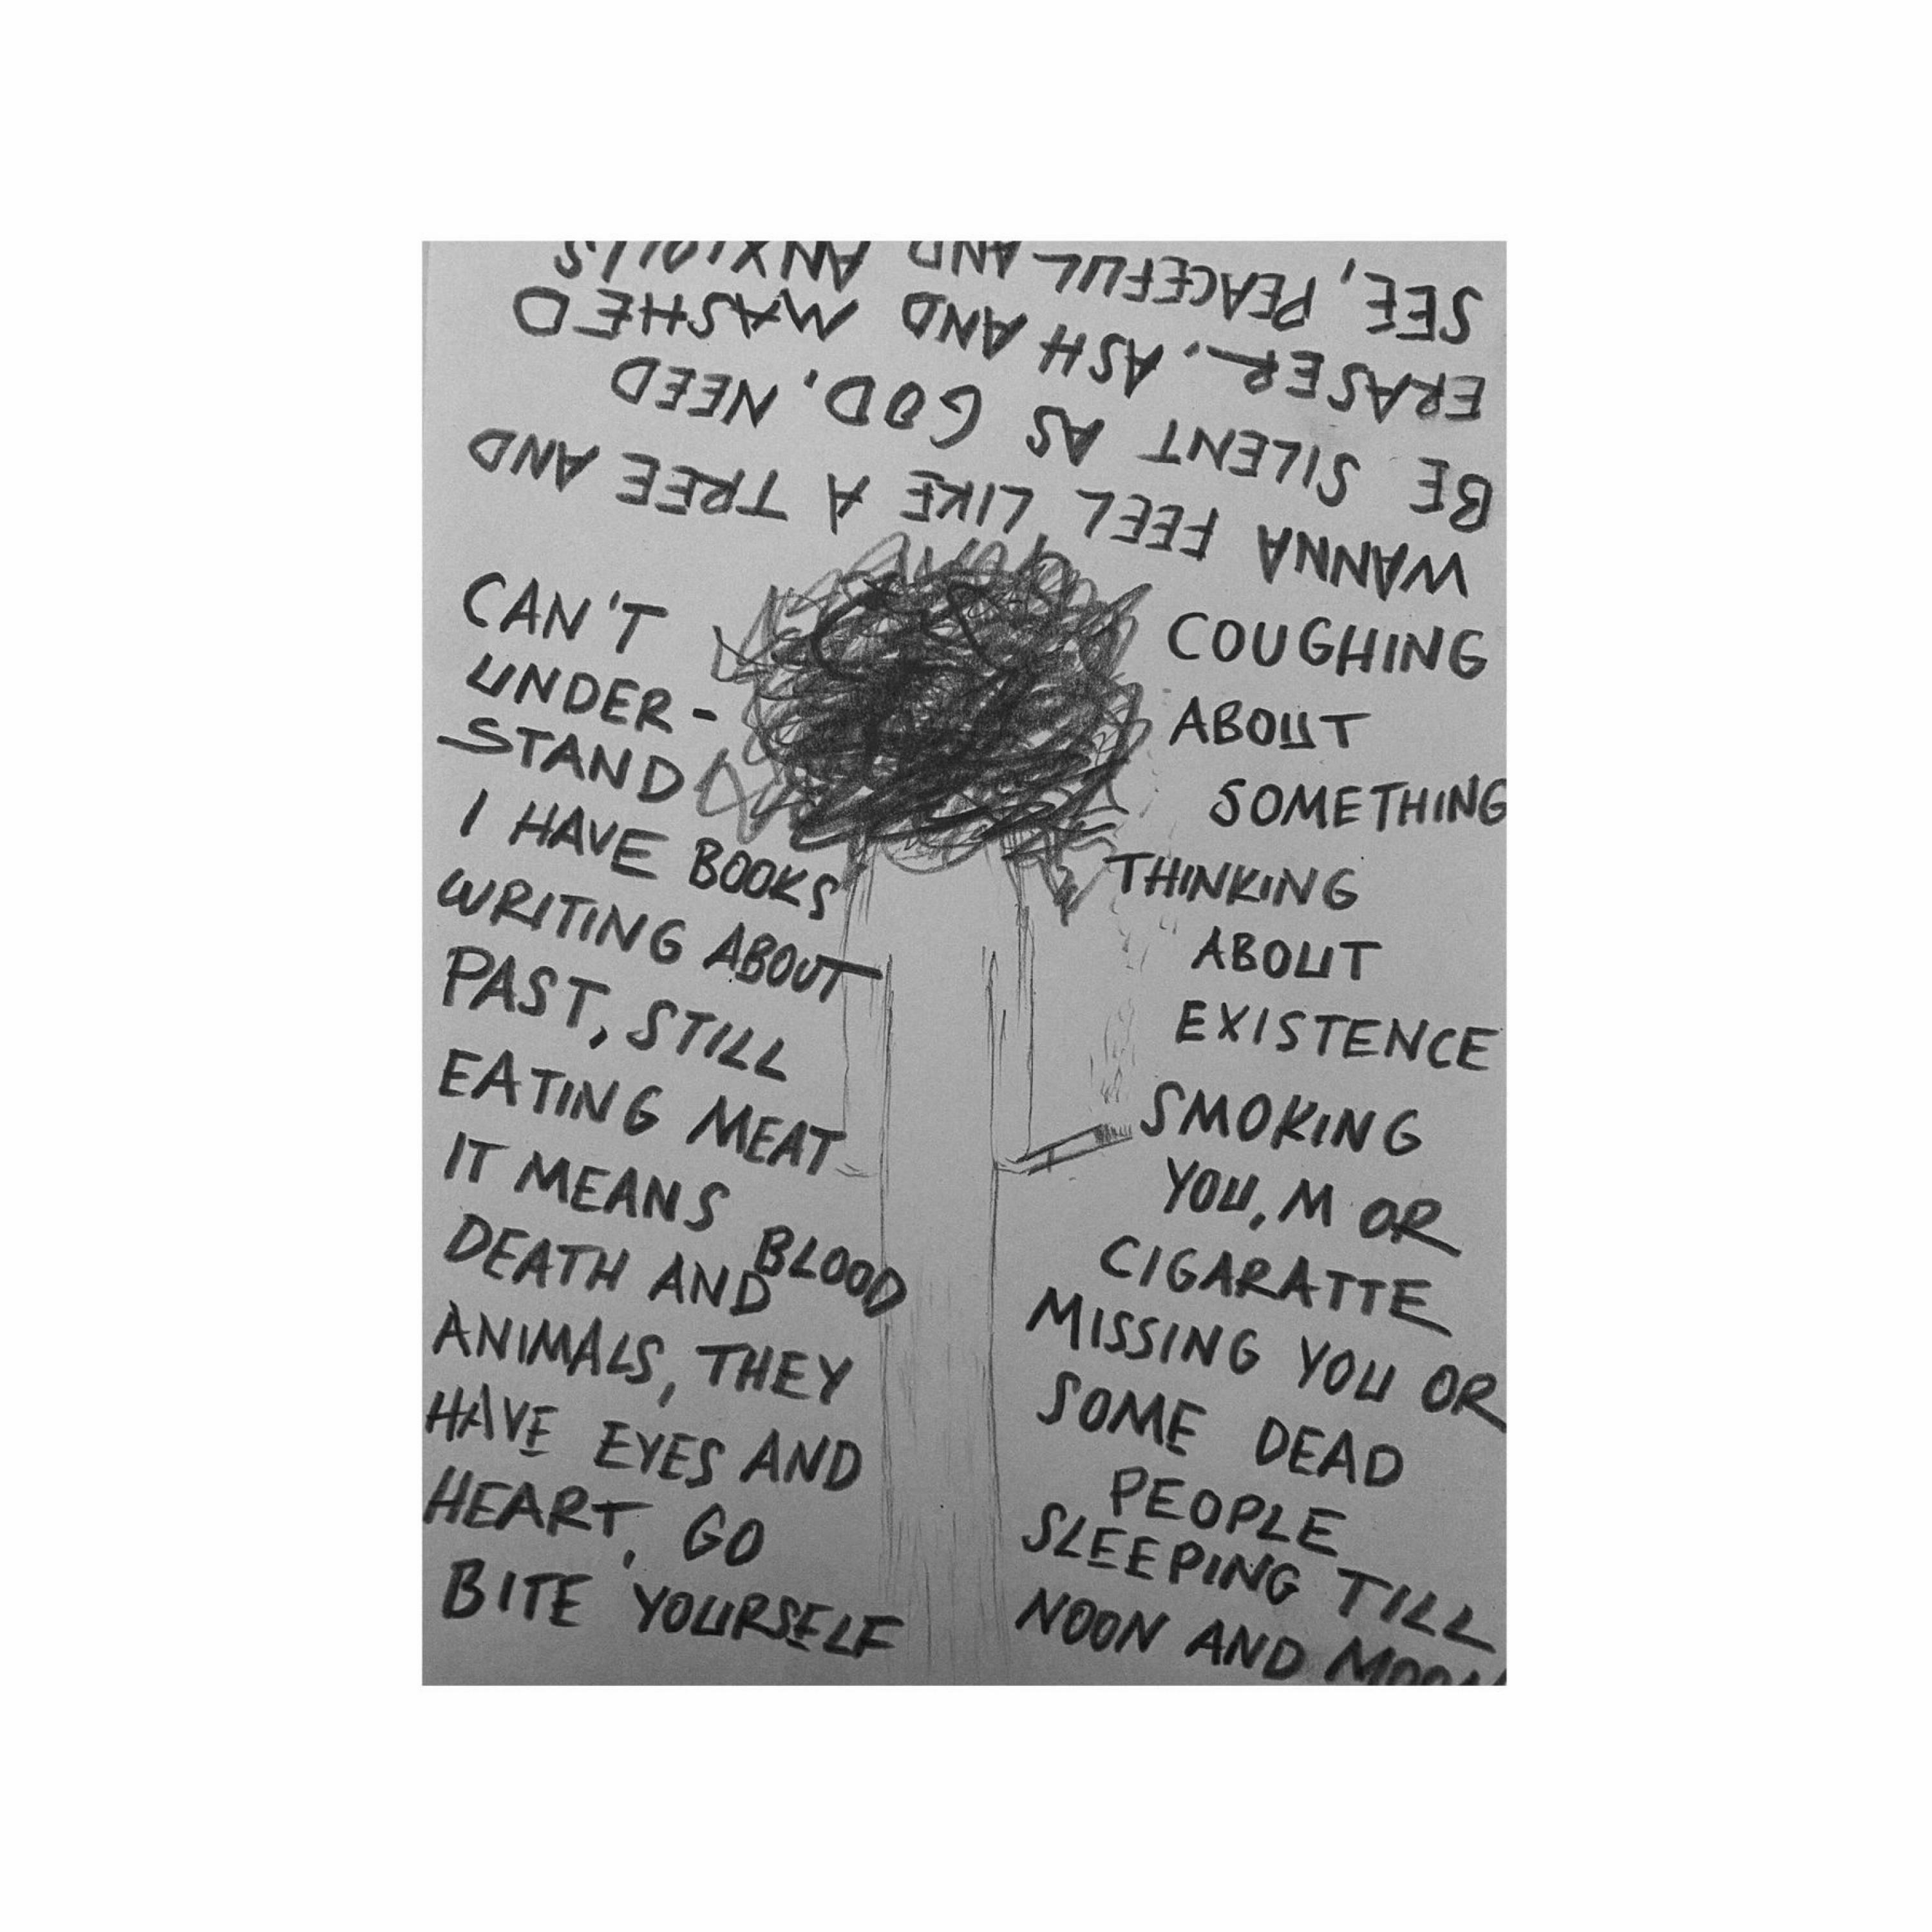 WANNA FEEL LIKE A TREE AND
BE SILENT AS GOD, NEED
ERASER, ASH AND MASHED
SEE, PEACEFUL AND ANXIOUS
CAN'T
UNDER-
STAND
I HAVE BOOKS
WRITING ABOUT
PAST, STILL
EATING MEAT
IT MEANS BLOOD
DEATH AND
ANIMALS, THEY
HAVE EYES AND
HEART, GO
BITE YOURSELF
COUGHING
ABOUT
SOMETHING
THINKING
ABOUT
EXISTENCE
SMOKING
YOU, M OR
CIGARATTE
MISSING YOU OR
SOME DEAD
PEOPLE
SLEEPING TILL
NOON AND MOON